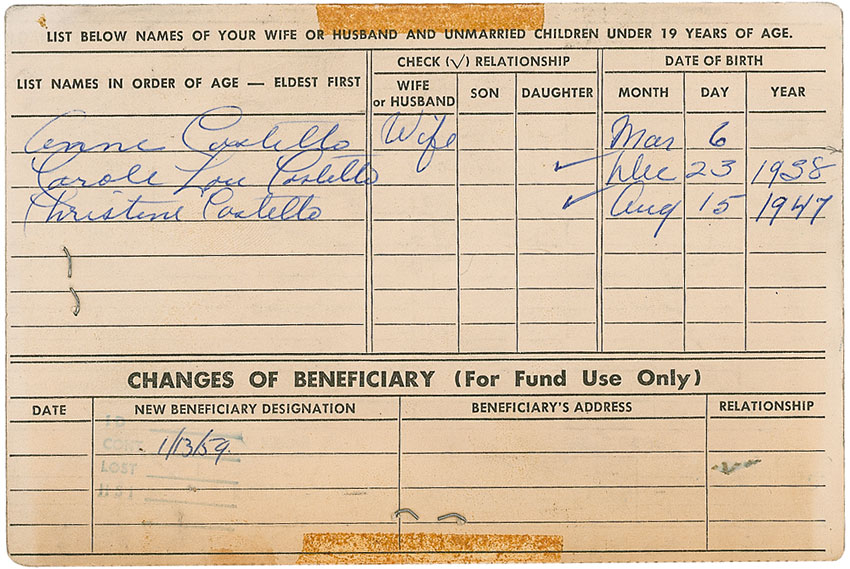 LIST BELOW NAMES OF YOUR WIFE OR HUSBAND AND UNMARRIED CHILDREN UNDER 19 YEARS OF AGE.
LIST NAMES IN ORDER OF AGE — ELDEST FIRST
CHECK (√) RELATIONSHIP
DATE OF BIRTH
WIFE or HUSBAND SON DAUGHTER MONTH DAY YEAR
Anne Costello Wife Mar 6
Carole Lou Costello ✓ Dec 23 1938
Christine Costello ✓ Aug 15 1947
CHANGES OF BENEFICIARY (For Fund Use Only)
DATE NEW BENEFICIARY DESIGNATION BENEFICIARY'S ADDRESS RELATIONSHIP
I D
CONT 1/13/59
LOST